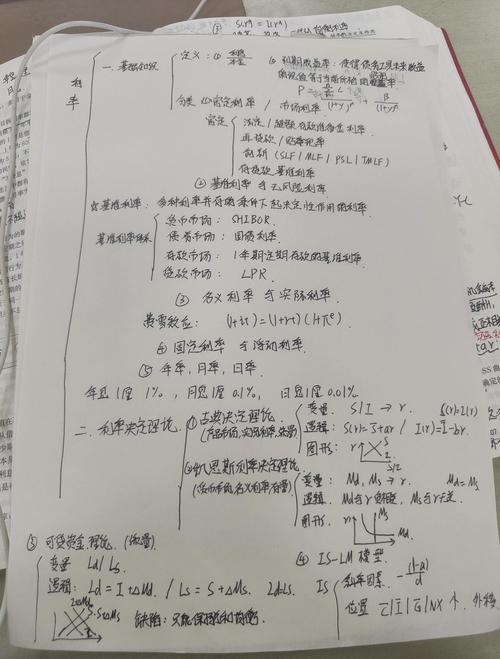 S(r*) = I(r*)
利率
一、基础知识
定义：① 利息/本金
② 到期收益率：使得债务工具未来收益
的现值等于当前价格的收益率
分类 ①官定利率 / 市场利率
官定
法定 / 超额存款准备金利率
再贷款 / 贴现率
创新 (SLF / MLF / PSL / TMLF)
存贷款基准利率
② 基准利率 与无风险利率
☆基准利率：多种利率并存的条件下起决定性作用的利率
基准利率体系
货币市场：SHIBOR.
债券市场：国债利率.
存款市场：1年期定期存款的基准利率.
贷款市场：LPR
③ 名义利率 与实际利率.
费雪效应：(1+it)=(1+rt)(1+πe)
④ 固定利率 与浮动利率.
⑤ 年率，月率，日率.
年息1厘 1%，月息1厘 0.1%，日息1厘 0.01%
二、利率决定理论.
①古典决定理论
(产品市场，实际利率，流量)
变量：S/I → r. S(r)=I(r)
逻辑：S(r)=S+ar / I(r)=I-br.
图形：r S I S/I
②凯恩斯利率决定理论
(货币市场，名义利率，存量)
变量：Md, Ms → r. Md=Ms
逻辑 Md与r负相关，Ms与r无关.
图形：r Ms Md.
③ 可贷资金理论.（流量）
变量 Ld / Ls
逻辑：Ld = I + ΔMd. / Ls = S + ΔMs. Ld=Ls.
S+ΔMs
缺陷：只能保持总和均衡.
④ IS-LM 模型.
IS
斜率因素.
位置 C / I / G / NX ↑. 外移